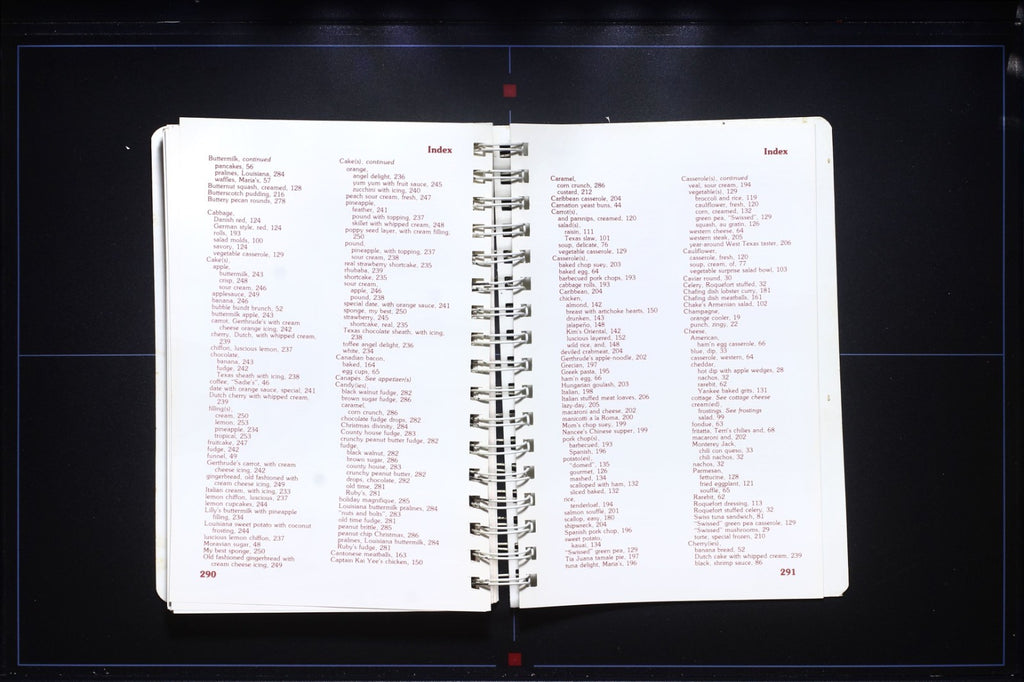 Index
Buttermilk, continued
pancakes, 56
pralines, Louisiana, 284
waffles, Maria's, 57
Butternut squash, creamed, 128
Butterscotch pudding, 216
Buttery pecan rounds, 278
Cabbage,
Danish red, 124
German style, red, 124
rolls, 193
salad molds, 100
savory, 124
vegetable casserole, 129
Cake(s),
apple,
buttermilk, 243
crisp, 248
sour cream, 246
applesauce, 249
banana, 246
bubble bundt brunch, 52
buttermilk apple, 243
carrot, Gerthrude's with cream
cheese orange icing, 242
cherry, Dutch, with whipped cream,
239
chiffon, luscious lemon, 237
chocolate,
banana, 243
fudge, 242
Texas sheath with icing, 238
coffee, "Sadie's", 46
date with orange sauce, special, 241
Dutch cherry with whipped cream,
239
filling(s),
cream, 250
lemon, 253
pineapple, 234
tropical, 253
fruitcake, 247
fudge, 242
funnel, 49
Gerthrude's carrot, with cream
cheese icing, 242
gingerbread, old fashioned with
cream cheese icing, 249
Italian cream, with icing, 233
lemon chiffon, luscious, 237
lemon cupcakes, 244
Lilly's buttermilk with pineapple
filling, 234
Louisiana sweet potato with coconut
frosting, 244
luscious lemon chiffon, 237
Moravian sugar, 48
My best sponge, 250
Old fashioned gingerbread with
cream cheese icing, 249
Cake(s), continued
orange,
angel delight, 236
yum yum with fruit sauce, 245
zucchini with icing, 240
peach sour cream, fresh, 247
pineapple,
leather, 241
pound with topping, 237
skillet with whipped cream, 248
poppy seed layer, with cream filling,
250
pound,
pineapple, with topping, 237
sour cream, 238
real strawberry shortcake, 235
rhubarb, 239
shortcake, 235
sour cream,
apple, 246
pound, 238
special date, with orange sauce, 241
sponge, my best, 250
strawberry, 245
shortcake, real, 235
Texas chocolate sheath, with icing,
238
toffee angel delight, 236
white, 234
Canadian bacon,
baked, 164
egg cups, 65
Canapés. See appetizer(s)
Candy(ies),
black walnut fudge, 282
brown sugar fudge, 286
caramel,
corn crunch, 286
chocolate fudge drops, 282
Christmas divinity, 284
County house fudge, 283
crunchy peanut butter fudge, 282
fudge,
black walnut, 282
brown sugar, 286
county house, 283
crunchy peanut butter, 282
drops, chocolate, 282
old time, 281
Ruby's, 281
holiday magnifique, 285
Louisiana buttermilk pralines, 284
"nuts and bolts", 283
old time fudge, 281
peanut brittle, 285
peanut chip Christmas, 286
pralines, Louisiana buttermilk, 284
Ruby's fudge, 281
Cantonese meatballs, 163
Captain Kai Yee's chicken, 150
290
Index
Caramel,
corn crunch, 286
custard, 212
Caribbean casserole, 204
Carnation yeast buns, 44
Carrot(s),
and parsnips, creamed, 120
salad(s),
raisin, 111
Texas slaw, 101
soup, delicate, 76
vegetable casserole, 129
Casserole(s),
baked chop suey, 203
baked egg, 64
barbecued pork chops, 193
cabbage rolls, 193
Caribbean, 204
chicken,
almond, 142
breast with artichoke hearts, 150
drunken, 143
jalapeño, 148
Kim's Oriental, 142
luscious layered, 152
wild rice, and, 148
deviled crabmeat, 204
Gerthrude's apple-noodle, 202
Grecian, 197
Greek pasta, 195
ham'n egg, 66
Hungarian goulash, 203
Italian, 198
Italian stuffed meat loaves, 206
lazy-day, 205
macaroni and cheese, 202
manicotti à la Roma, 200
Mom's chop suey, 199
Nancee's Chinese supper, 199
pork chop(s),
barbecued, 193
Spanish, 196
potato(es),
"domed", 135
gourmet, 126
mashed, 134
scalloped with ham, 132
sliced baked, 132
rice,
tenderloin, 194
salmon souffle, 201
scallop, easy, 180
shipwreck, 204
Spanish pork chop, 196
sweet potato,
kauai, 134
"Swissed" green pea, 129
Tia Juana tamale pie, 197
tuna delight, Maria's, 196
Casserole(s), continued
veal, sour cream, 194
vegetable(s), 129
broccoli and rice, 119
cauliflower, fresh, 120
corn, creamed, 132
green pea, "Swissed", 129
squash, au gratin, 126
western cheese, 64
western steak, 205
year-around West Texas taster, 206
Cauliflower,
casserole, fresh, 120
soup, cream, of, 77
vegetable surprise salad bowl, 103
Caviar round, 30
Celery, Roquefort stuffed, 32
Chafing dish lobster curry, 181
Chafing dish meatballs, 161
Chake's Armenian salad, 102
Champagne,
orange cooler, 19
punch, zingy, 22
Cheese,
American,
ham'n egg casserole, 66
blue, dip, 33
casserole, western, 64
cheddar,
hot dip with apple wedges, 28
nachos, 32
rarebit, 62
Yankee baked grits, 131
cottage. See cottage cheese
cream(ed),
frostings. See frostings
salad, 99
fondue, 63
frittatta, Terri's chilies and, 68
macaroni and, 202
Monterey Jack,
chili con queso, 33
chili nachos, 32
nachos, 32
Parmesan,
fettucine, 128
fried eggplant, 121
souffle, 65
Rarebit, 62
Roquefort dressing, 113
Roquefort stuffed celery, 32
Swiss tuna sandwich, 81
"Swissed" green pea casserole, 129
"Swissed" mushrooms, 29
torte, special frozen, 210
Cherry(ies),
banana bread, 52
Dutch cake with whipped cream, 239
black, shrimp sauce, 86
291